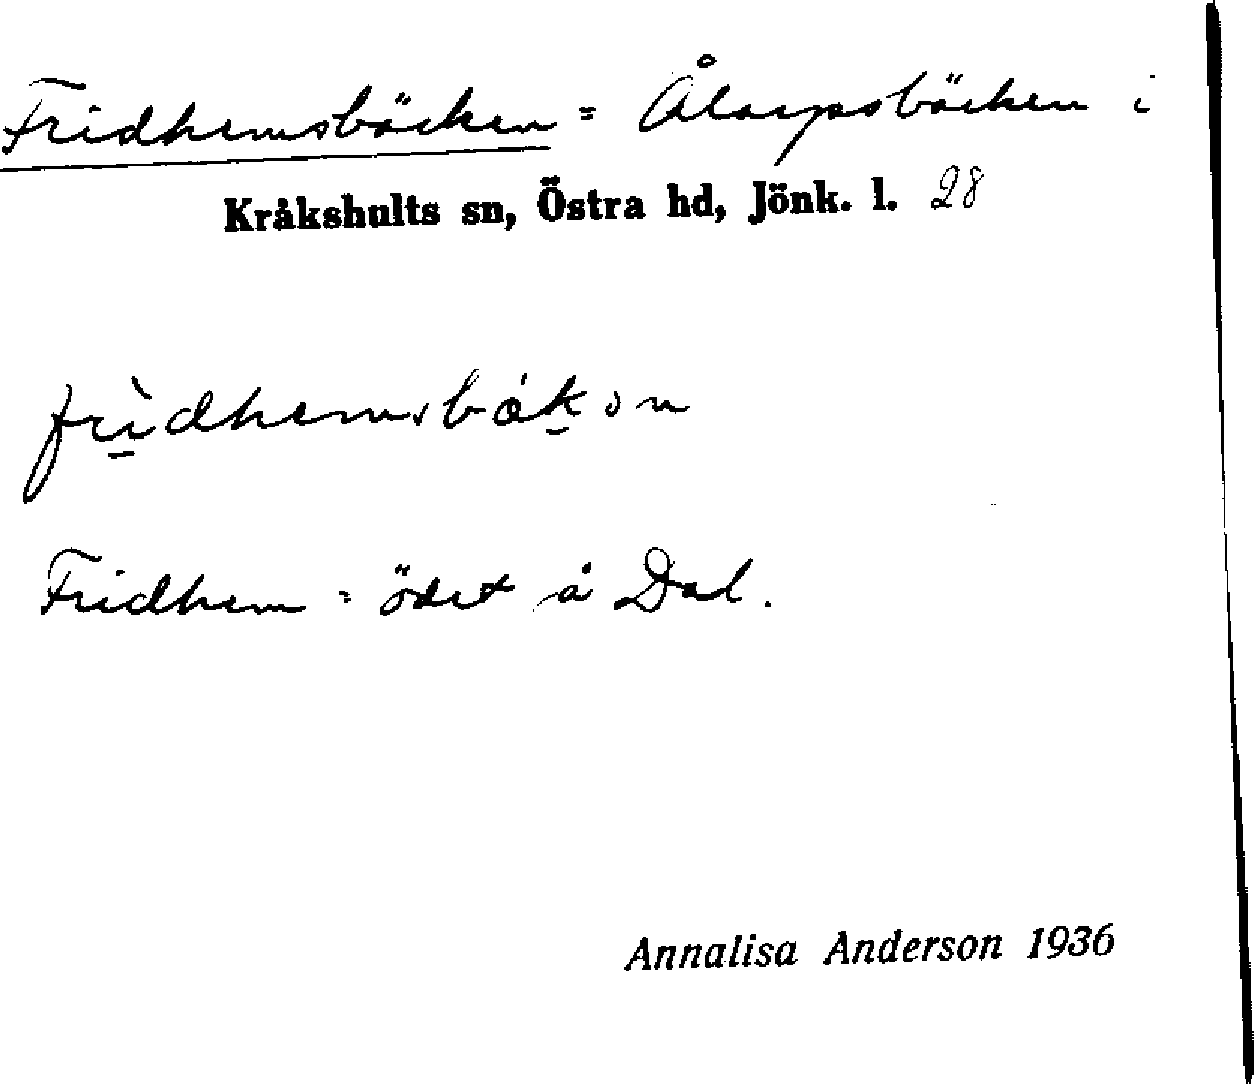 Fridhemsbäcken = Ålarpsbäcken i
Kråkshults sn, Östra hd, Jönk. l. 28
frìdhemsbåkən
Fridhem = ödet å Dal.
Annalisa Anderson 1936